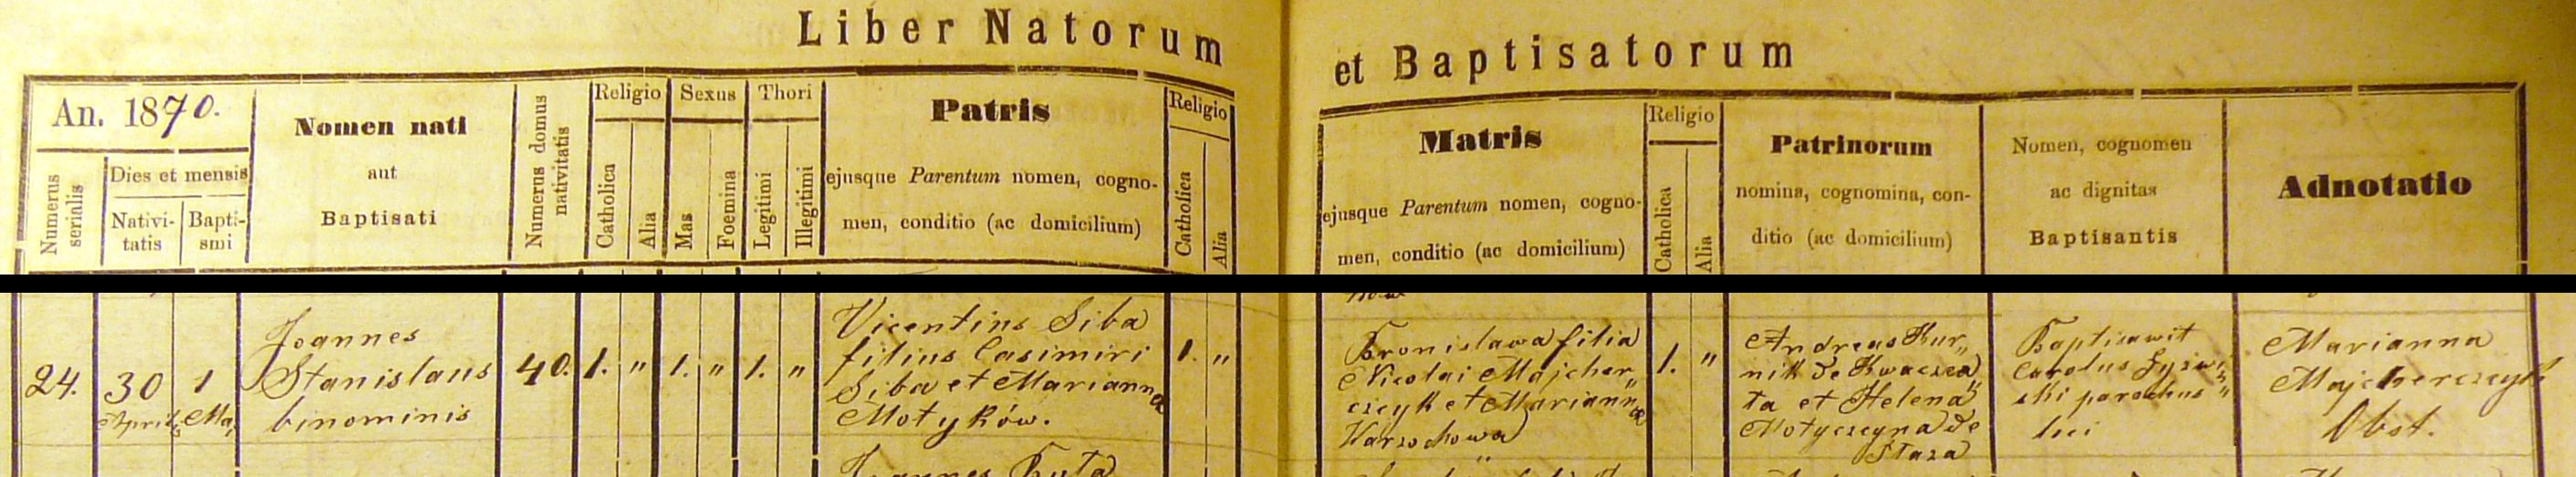 Liber Natorum
et Baptisatorum
An. 1870.
Numerus serialis
Dies et mensis
Nativi-
tatis
Bapti-
smi
Nomen nati
aut
Baptisati
Numerus domus
nativitatis
Religio
Catholica
Alia
Sexus
Mas
Foemina
Thori
Legitimi
Illegitimi
Patris
ejusque Parentum nomen, cogno-
men, conditio (ac domicilium)
Religio
Catholica
Alia
Matris
ejusque Parentum nomen, cogno-
men, conditio (ac domicilium)
Religio
Catholica
Alia
Patrinorum
nomina, cognomina, con-
ditio (ac domicilium)
Nomen, cognomen
ac dignitas
Baptisantis
Adnotatio
24.
30
Aprilis
1
Maj
Joannes
Stanislaus
binominis
40.
1.
"
1.
"
1.
"
Vicentius Siba
filius Casimiri
Siba et Marianna
Motyków.
1.
"
Bronislawa filia
Nicolai Majcher„
czyk et Mariannæ
Warzochowa
1.
"
Andreas Kur„
nik de Kwacza„
ta et Helena
Motyczyna de
Staza
Baptisawit
Carolus
ski parochus
loci
Marianna
Majcherczyk
Obst.
Joannes Buta